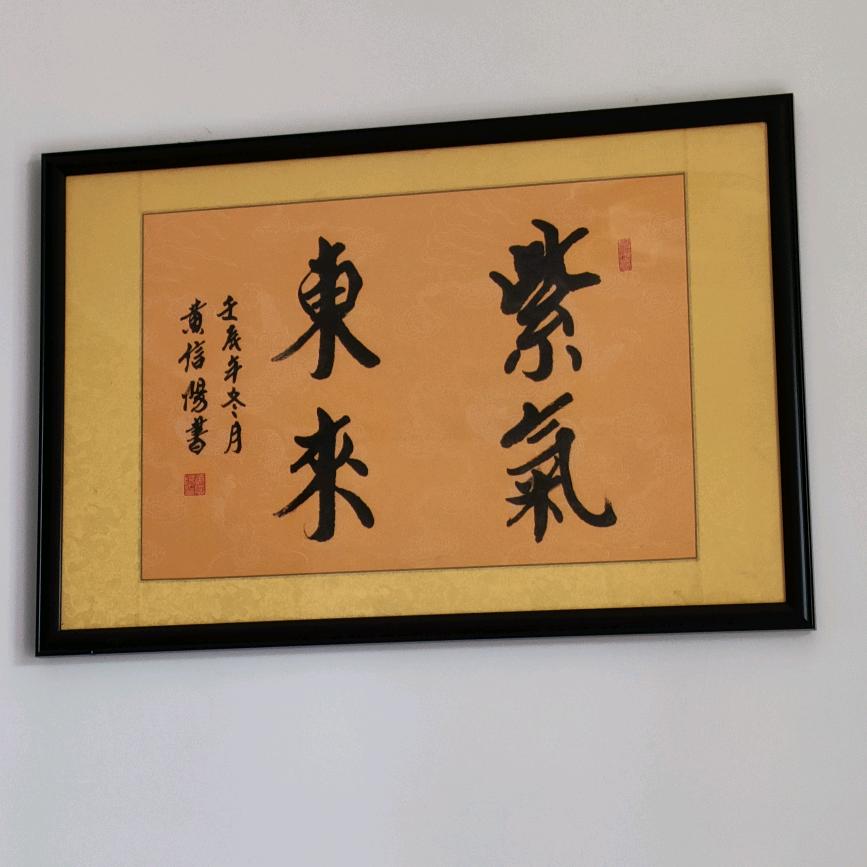 紫氣
東來
壬辰年冬月
黄信陽書